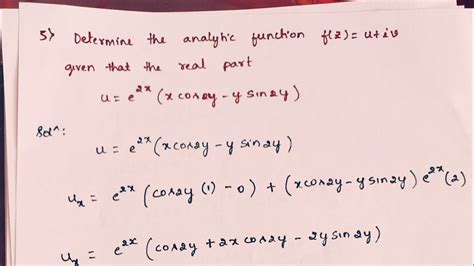 5) Determine the analytic function f(z) = u+iv
given that the real part
u = e^{2x} (x cos2y - y sin2y)
Sol^n:
u = e^{2x} (x cos2y - y sin2y)
u_x = e^{2x} (cos2y (1) - 0) + (x cos2y - y sin2y) e^{2x} (2)
u_x = e^{2x} (cos2y + 2x cos2y - 2y sin2y)